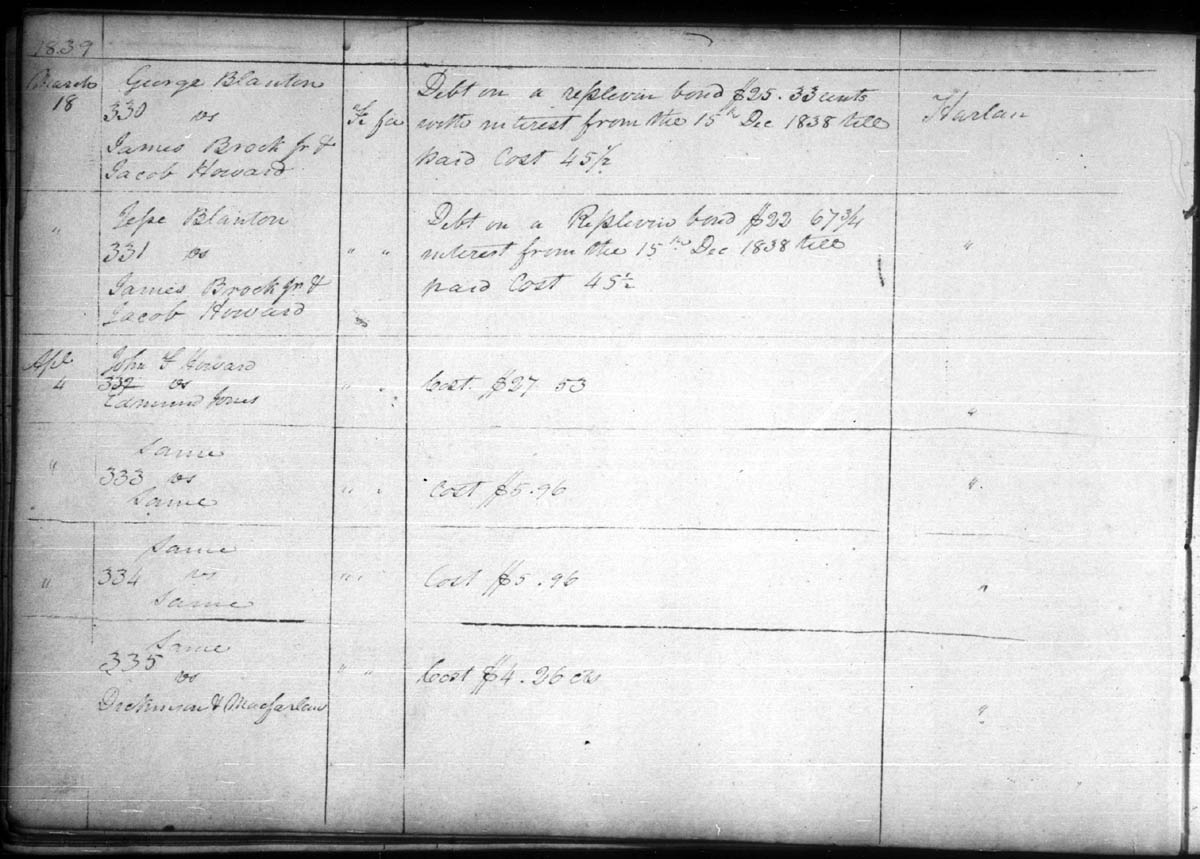 1839
March 18 George Blanton Debt on a replevin bond $25.33 cents Harlan
330 vs Fi fa with interest from the 15th Dec 1838 till
James Brock Jr & paid Cost 45 1/2
Jacob Howard
" Jesse Blanton Debt on a Replevin bond $22 67 3/4
331 vs " " interest from the 15th Dec 1838 till "
James Brock Jr & paid Cost 45 1/2
Jacob Howard
Apl John F Howard
4 332 vs " " Cost $27 53
Edmund Jones "
Same
" 333 vs " " Cost $5.96 "
Same
Same
" 334 vs " " Cost $5.96 "
Same
Same
335 vs " " Cost $4.26 cts
Dickinson & Macfarlan "